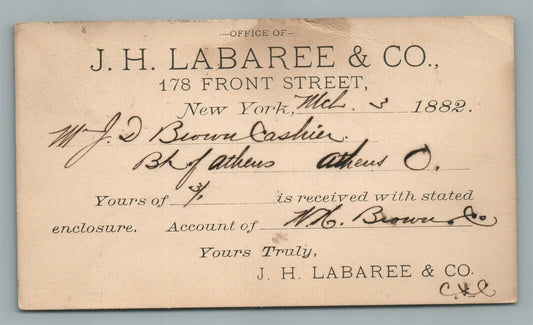 —OFFICE OF—
J. H. LABAREE & CO.,
178 FRONT STREET,
New York, Mch. 3 1882.
Mr J. D Brown Cashier
Bk of Athens Athens O.
Yours of is received with stated
enclosure. Account of Brown & Co
Yours Truly,
J. H. LABAREE & CO.